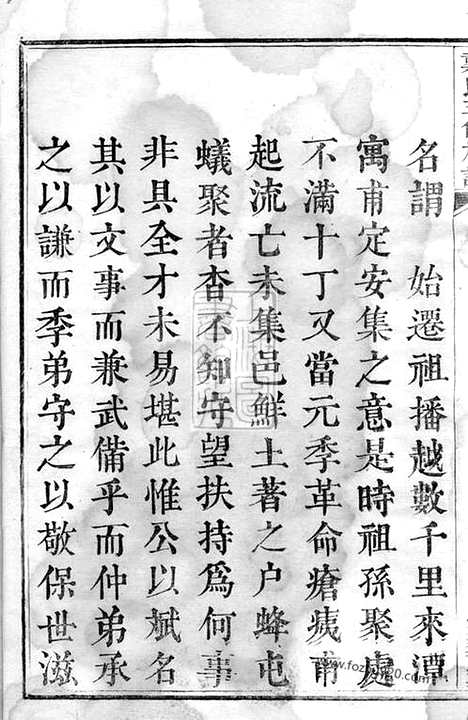 名謂　始遷祖播越數千里來潭
寓甫定安集之意是時祖孫聚處
不滿十丁又當元季革命瘡痍甫
起流亡未集邑鮮土著之户蜂屯
蟻聚者杳不知守望扶持爲何事
非具全才未易堪此惟公以斌名
其以文事而兼武備乎而仲弟承
之以謙而季弟守之以敬保世滋